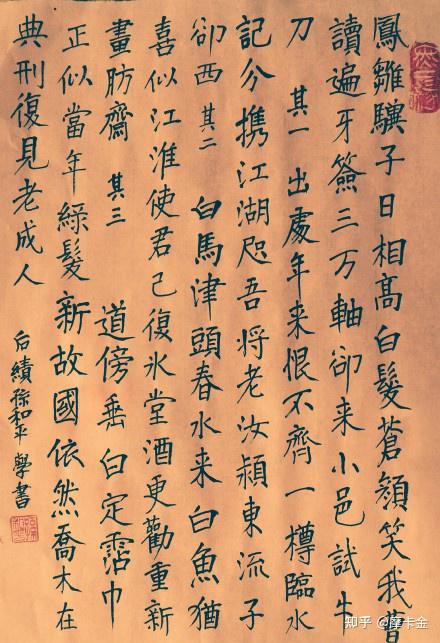 鳳雛驥子日相高白髮蒼顏笑我曹
讀遍牙簽三万軸卻来小邑試牛
刀 其一 出處年来恨不齊一樽臨水
記分携江湖咫吾將老汝潁東流子
卻西 其二 白馬津頭春水来白魚猶
喜似江淮使君已復氷堂酒更勸重新
畫肪齋 其三 道傍垂白定霑巾
正似當年綠髮新故國依然喬木在
典刑復見老成人
后績徐和平學書
知乎 @摩卡金